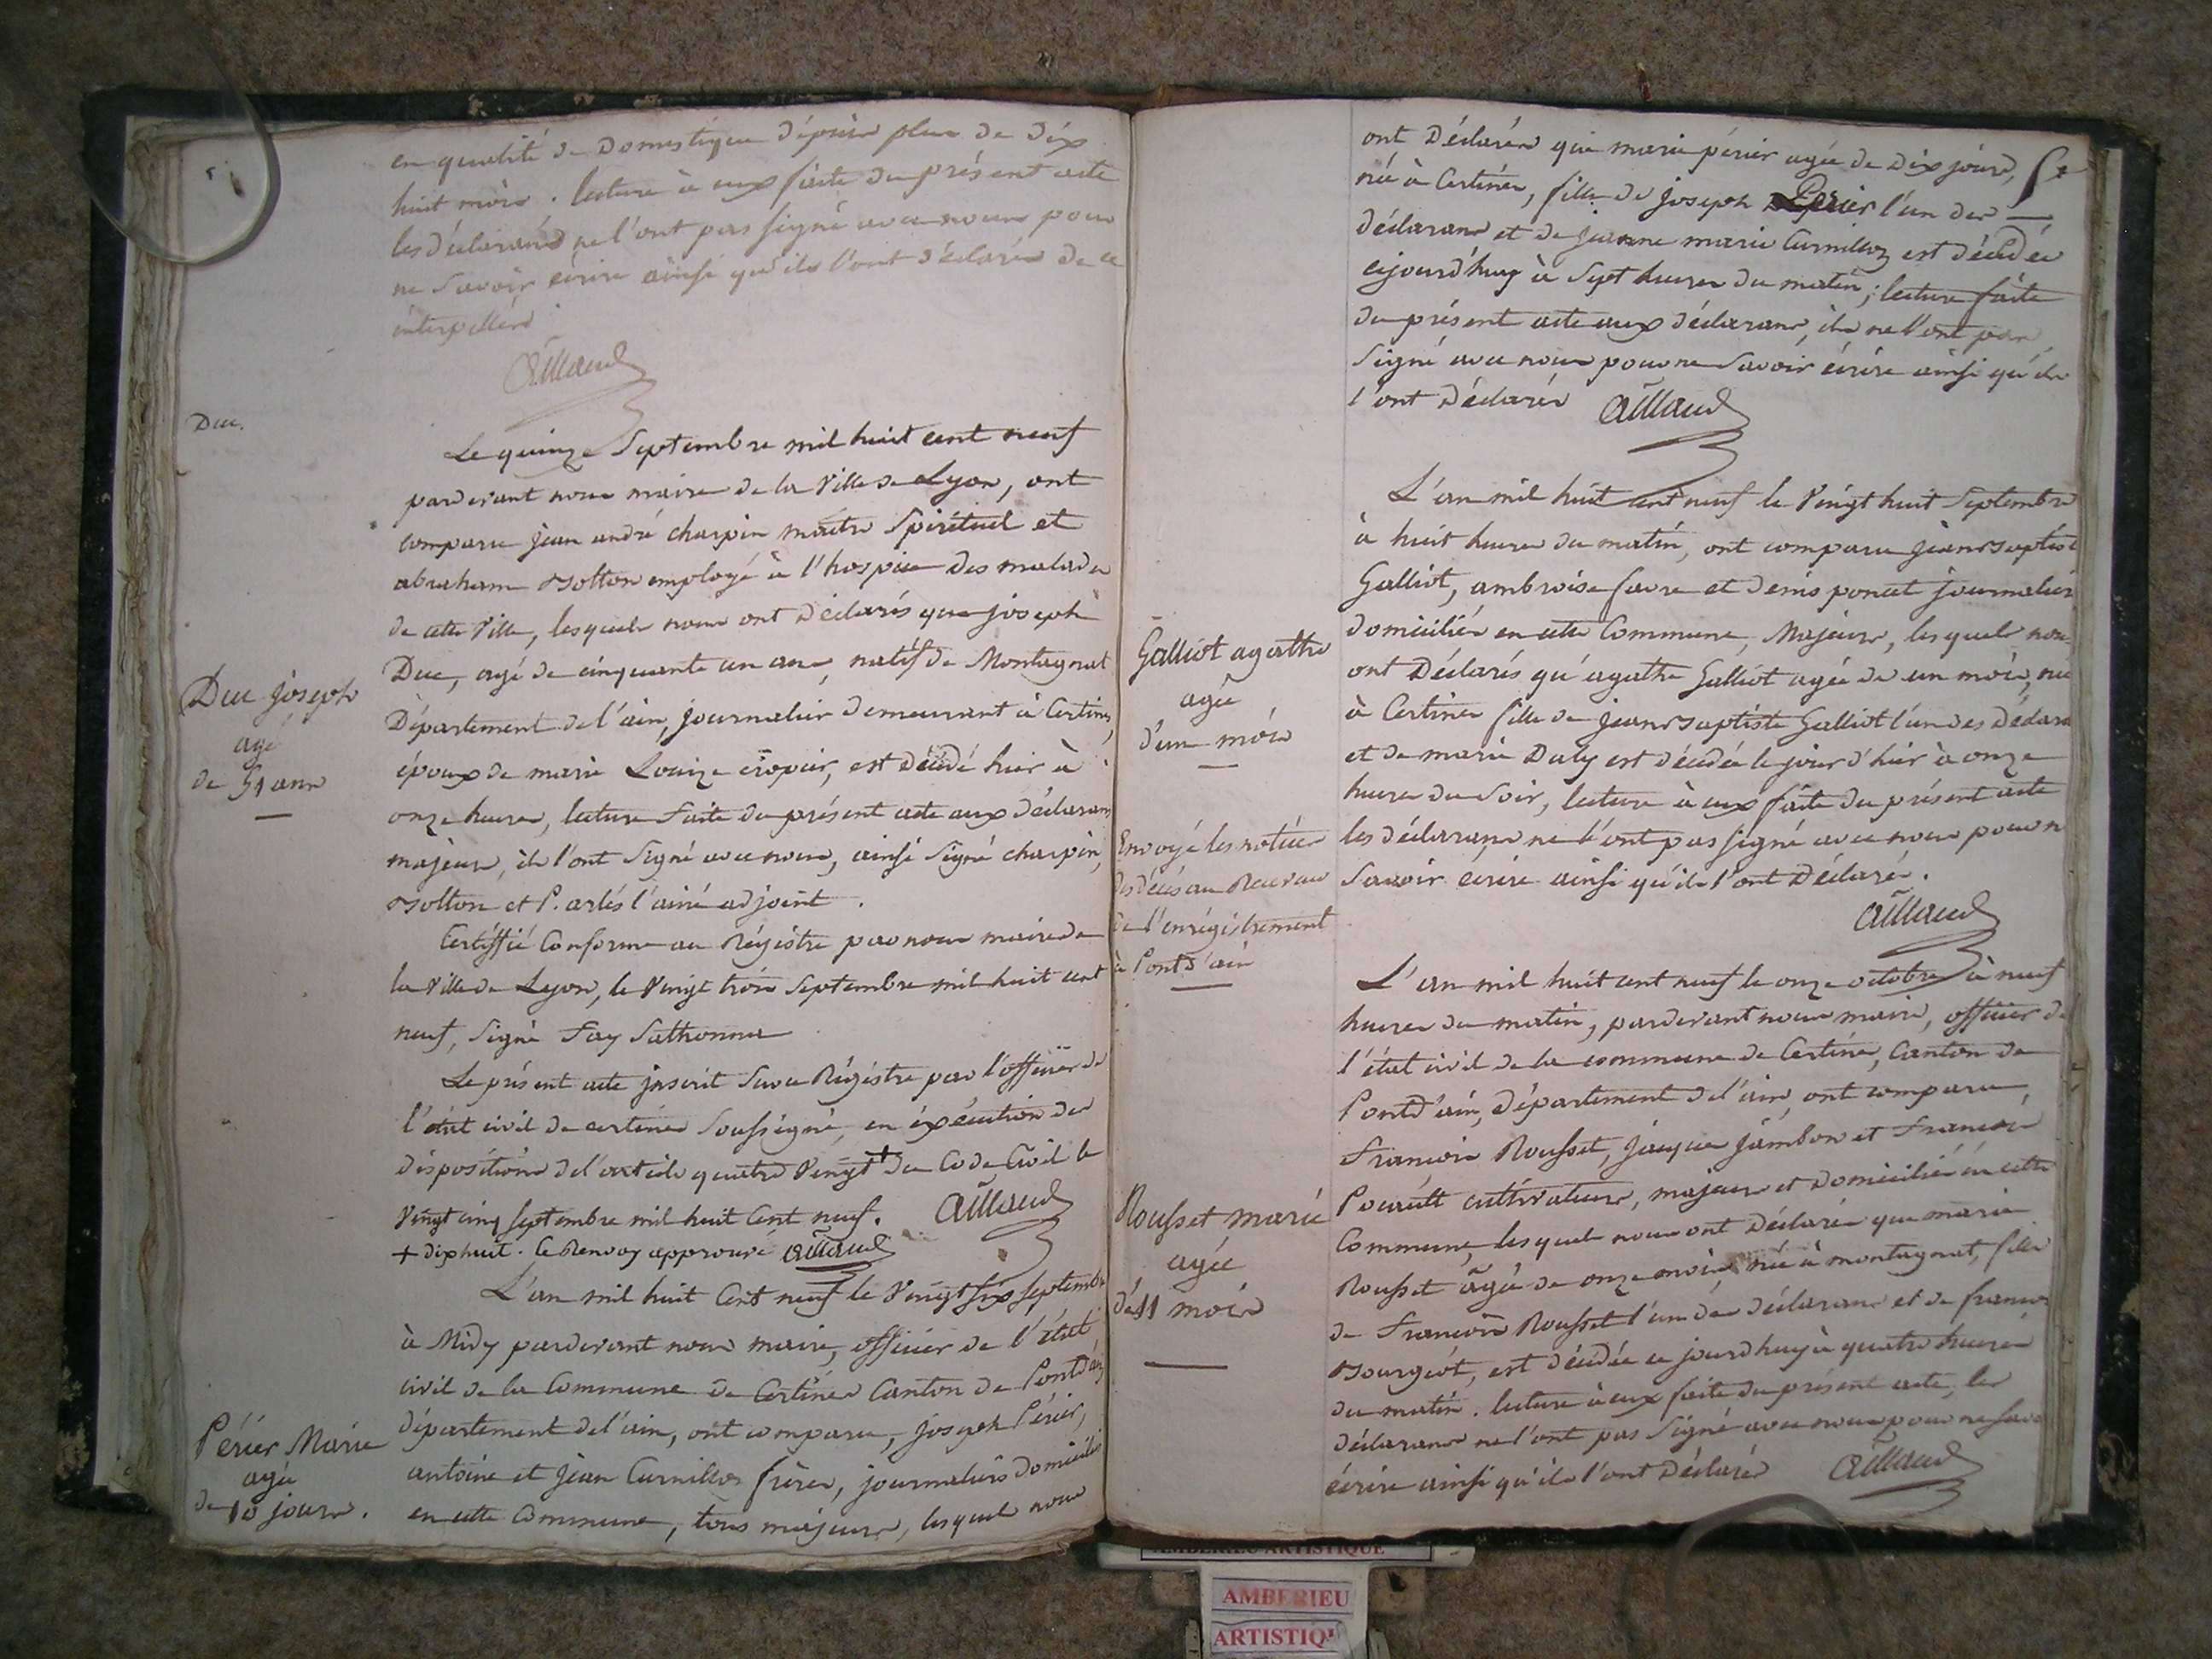 en qualité de Domestique dépuis plus de dix
huit mois. lecture à eux faite du présent acte
les déclarans ne l'ont pas signé avec nous pour
ne savoir écrire ainsi qu'ils l'ont déclarés de ce
interpellés
Aillaud
Duc.
Le quinze Septembre mil huit cent neuf
pardevant nous maire de la Ville de Lyon, ont
comparu jean andré charpin maître Spirituel et
abraham Bolton employé à l'hospice des malades
de cette Ville, lesquels nous ont déclarés que joseph
Duc, agé de cinquante un ans, natif de Montagnat
Département de l'ain, journalier demeurant à Certines,
époux de marie Louize, est décédé hier à
onze heures, lecture faite du présent acte aux déclarans
majeurs, ils l'ont signé avec nous, ainsi signé charpin,
Bolton et P. arlés l'ainé adjoint.
Duc joseph
agé
de 51 ans
Certiffié Conforme au Régistre par nous maire de
la Ville de Lyon, le Vingt trois Septembre mil huit cent
neuf, signé Fay Sathonna
Le présent acte jnscrit sur ce Régistre par l'officier de
l'état civil de certines soussigné, en éxécution des
dispositions de l'article quatre Vingt + du Code Civil le
Vingt cinq septembre mil huit Cent neuf. Aillaud
+ dixhuit. Ce Renvoy approuvé Aillaud
L'an mil huit Cent neuf le Vingt six septembre
à Midy pardevant nous maire, officier de l'état
civil de la Commune de Certines Canton de Pontd'ain,
département de l'ain, ont comparu, joseph Périer,
antoine et jean Curnillon frères, journaliers domiciliés
en cette Commune, tous majeurs, lesquels nous
Périer Marie
agée
de 10 jours.
ont Déclarés que marie périer agée de Dix jours,
née à Certines, fille de joseph Perier l'un des
déclarans et de jeanne marie Curnillon est décédée
cejourd'huy à Sept heures du matin; lecture faite
du présent acte aux déclarans, ils ne l'ont pas
signé avec nous pour ne savoir écrire ainsi qu'ils
l'ont Déclarés Aillaud
L'an mil huit cent neuf le Vingt huit Septembre
à huit heures du matin, ont comparu jean Baptiste
Galliot, ambroise favre et denis poncet journaliers
domiciliés en cette Commune, Majeurs, lesquels nous
ont Déclarés qu'agathe Galliot agée de un mois, née
à Certines fille de jean Baptiste Galliot l'un des Déclarans
et de marie Duby est décédée le jour d'hier à onze
heures du soir, lecture à eux faite du présent acte
les déclarans ne l'ont pas signé avec nous pour ne
savoir écrire ainsi qu'ils l'ont Déclarés.
Aillaud
Galliot agathe
agée
d'un mois
Envoyé les notices
des décés au Receveur
de l'enrégistrement
à Pontd'ain
L'an mil huit cent neuf le onze octobre à neuf
heures du matin, pardevant nous maire, officier de
l'état civil de la commune de Certines, Canton de
Pontd'ain, département de l'ain, ont comparu,
François Rousset, jacques jambon et François
cultivateurs, majeurs et domiciliés en cette
Commune, lesquels nous ont Déclarés que marie
Rousset agée de onze mois, née à montagnat, fille
de François Rousset l'un des déclarans et de françoise
Bourgeot, est décédée ce jourd'huy à quatre heures
du matin. lecture à eux faite du présent acte, les
déclarans ne l'ont pas signé avec nous pour ne savoir
écrire ainsi qu'ils l'ont Déclarés Aillaud
Rousset marie
agée
de 11 mois
AMBERIEU ARTISTIQUE
AMBERIEU
ARTISTIQU